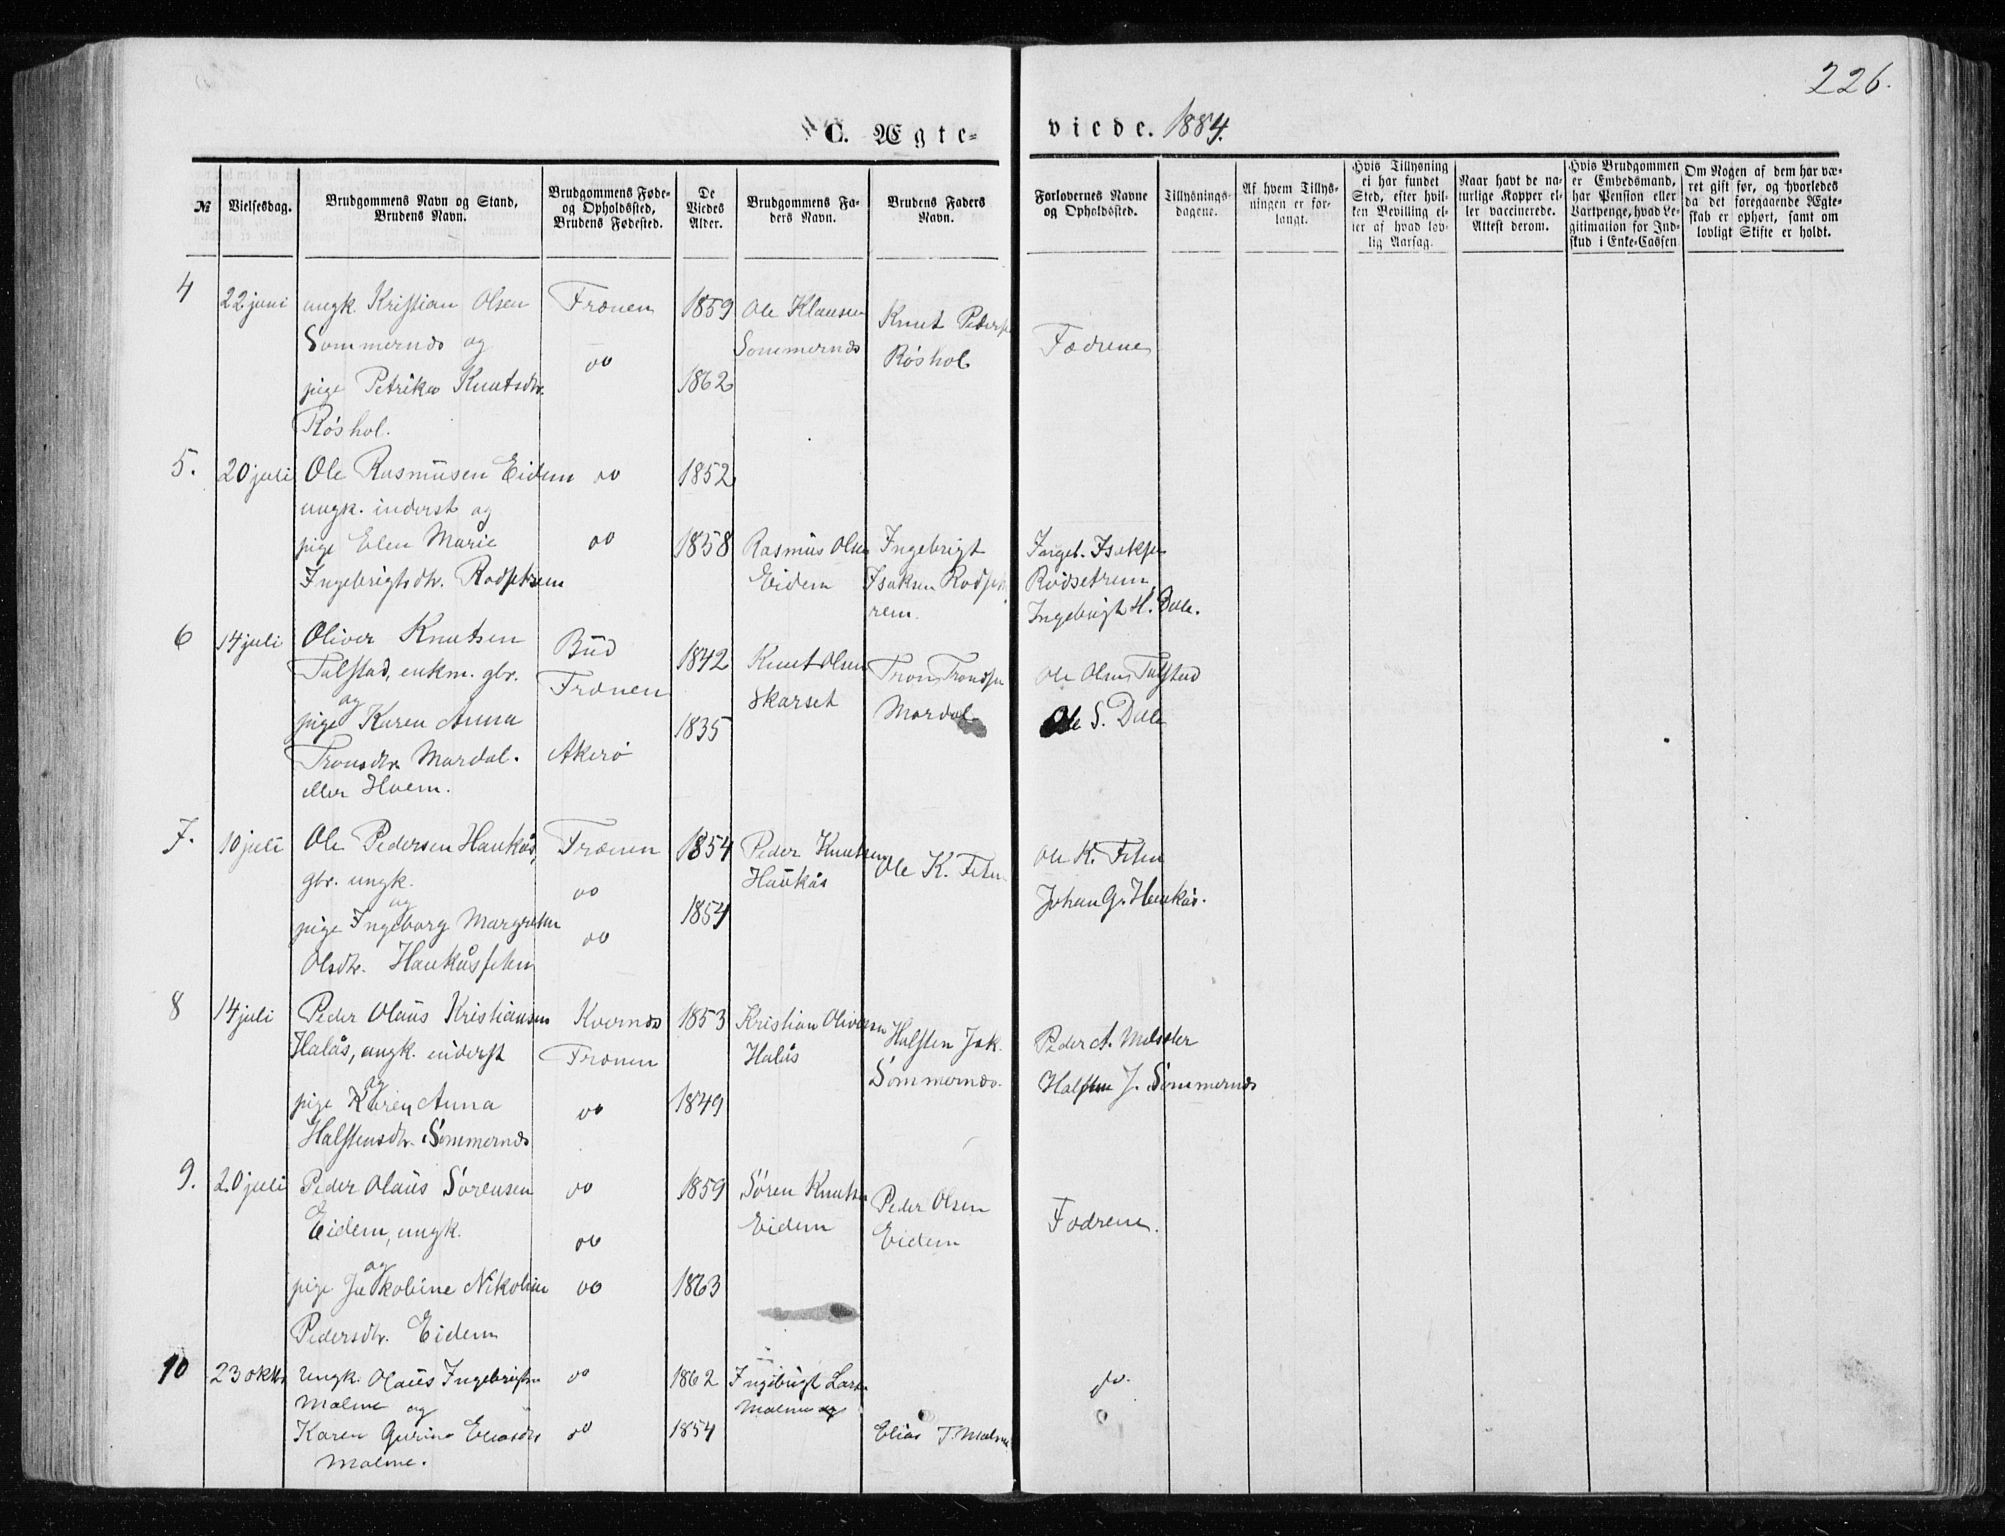 226.
C. Ægte- viede. 1884.
№
Vielsesdag.
Brudgommens Navn og Stand,
Brudens Navn.
Brudgommens Føde-
og Opholdssted,
Brudens Fødested.
De
Viedes
Alder.
Brudgommens Fa-
ders Navn.
Brudens Faders
Navn.
Forlovernes Navne
og Opholdssted.
Tillysnings-
dagene.
Af hvem Tillys-
ningen er for-
langt.
Hvis Tillysning
ei har fundet
Sted, efter hvil-
ken Bevilling el-
ler af hvad lov-
lig Aarsag.
Naar havt de na-
turlige Kopper el-
ler vaccinerede.
Attest derom.
Hvis Brudgommen
er Embedsmand,
har Pension eller
Vartpenge, hvad Le-
gitimation for Ind-
skud i Enke-Cassen
Om Nogen af dem har væ-
ret gift før, og hvorledes
da det foregaaende Ægte-
skab er ophørt, samt om
lovligt Skifte er holdt.
4
22 juni
ungk. Kristian Olsen
Sommernæs og
pige Petrika Knutsdtr.
Røshol.
Frænen
do
1859
1862
Ole Klausen
Sommernæs
Knut Peders
Røshol
Fædrene
5.
20 juli
Ole Rasmusen Eidem
ungk. inderst og
pige Elen Marie
Ingebrigtsdtr. Rødsetrem
do
do
1852
1858
Rasmus Olsen
Eidem
Ingebrigt
Isaksen Rødset
rem.
Ingeb. Isaksen
Rødsetrem
Ingebrigt H. Dale.
6
14 juli
Oliver Knutsen
Talstad, enkm. gbr.
og
pige Karen Anna
Tronsdtr. Mardal.
eller Hoem.
Bud
Frænen
Akerø
1842
1835
Knut Olsen
Skarset
Tron Tronsen
Mardal
Ole Olsen Talstad
Ole S. Dale
7.
10 juli
Ole Pedersen Haukås,
gbr. ungk.
og
pige Ingeborg Margrethe
Olsdtr. Haukåsfeten
Frænen
do
do
1854
1854
Peder Knutsen
Haukås
Ole K. Feten
Ole K. Feten
Johan G. Haukås.
8
14 juli
Peder Olaus Kristiansen
Halås, ungk. inderst
og
pige Karen Anna
Halstensdtr. Sommernæs
Kvernæs
Frænen
do
1853
1849
Kristian Oliversen
Halås
Halsten Jak.
Sommernæs.
Peder A. Malseter
Halsten J. Sommernæs
9.
20 juli
Peder Olaus Sørensen
Eidem, ungk.
og
pige Jakobine Nikoline
Pedersdtr. Eidem
do
do
do
1859
1863
Søren Knutsen
Eidem
Peder Olsen
Eidem
Fædrene.
10
23 oktb
Ungk. Olaus Ingebrigtsen
Malme og
Karen Gurine Eliasdtr
Malme.
do
do
1862
1854
Ingebrigt Lars
Malme og
Elias T. Malme
do.